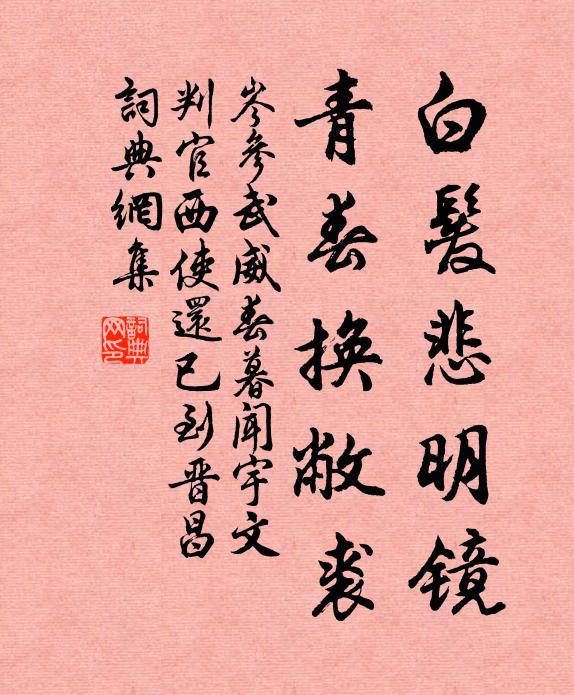 白髮悲明镜
青春換敝裘
岑參武威春暮聞宇文
判官西使還已到晋昌
詞典網集
詞典網印